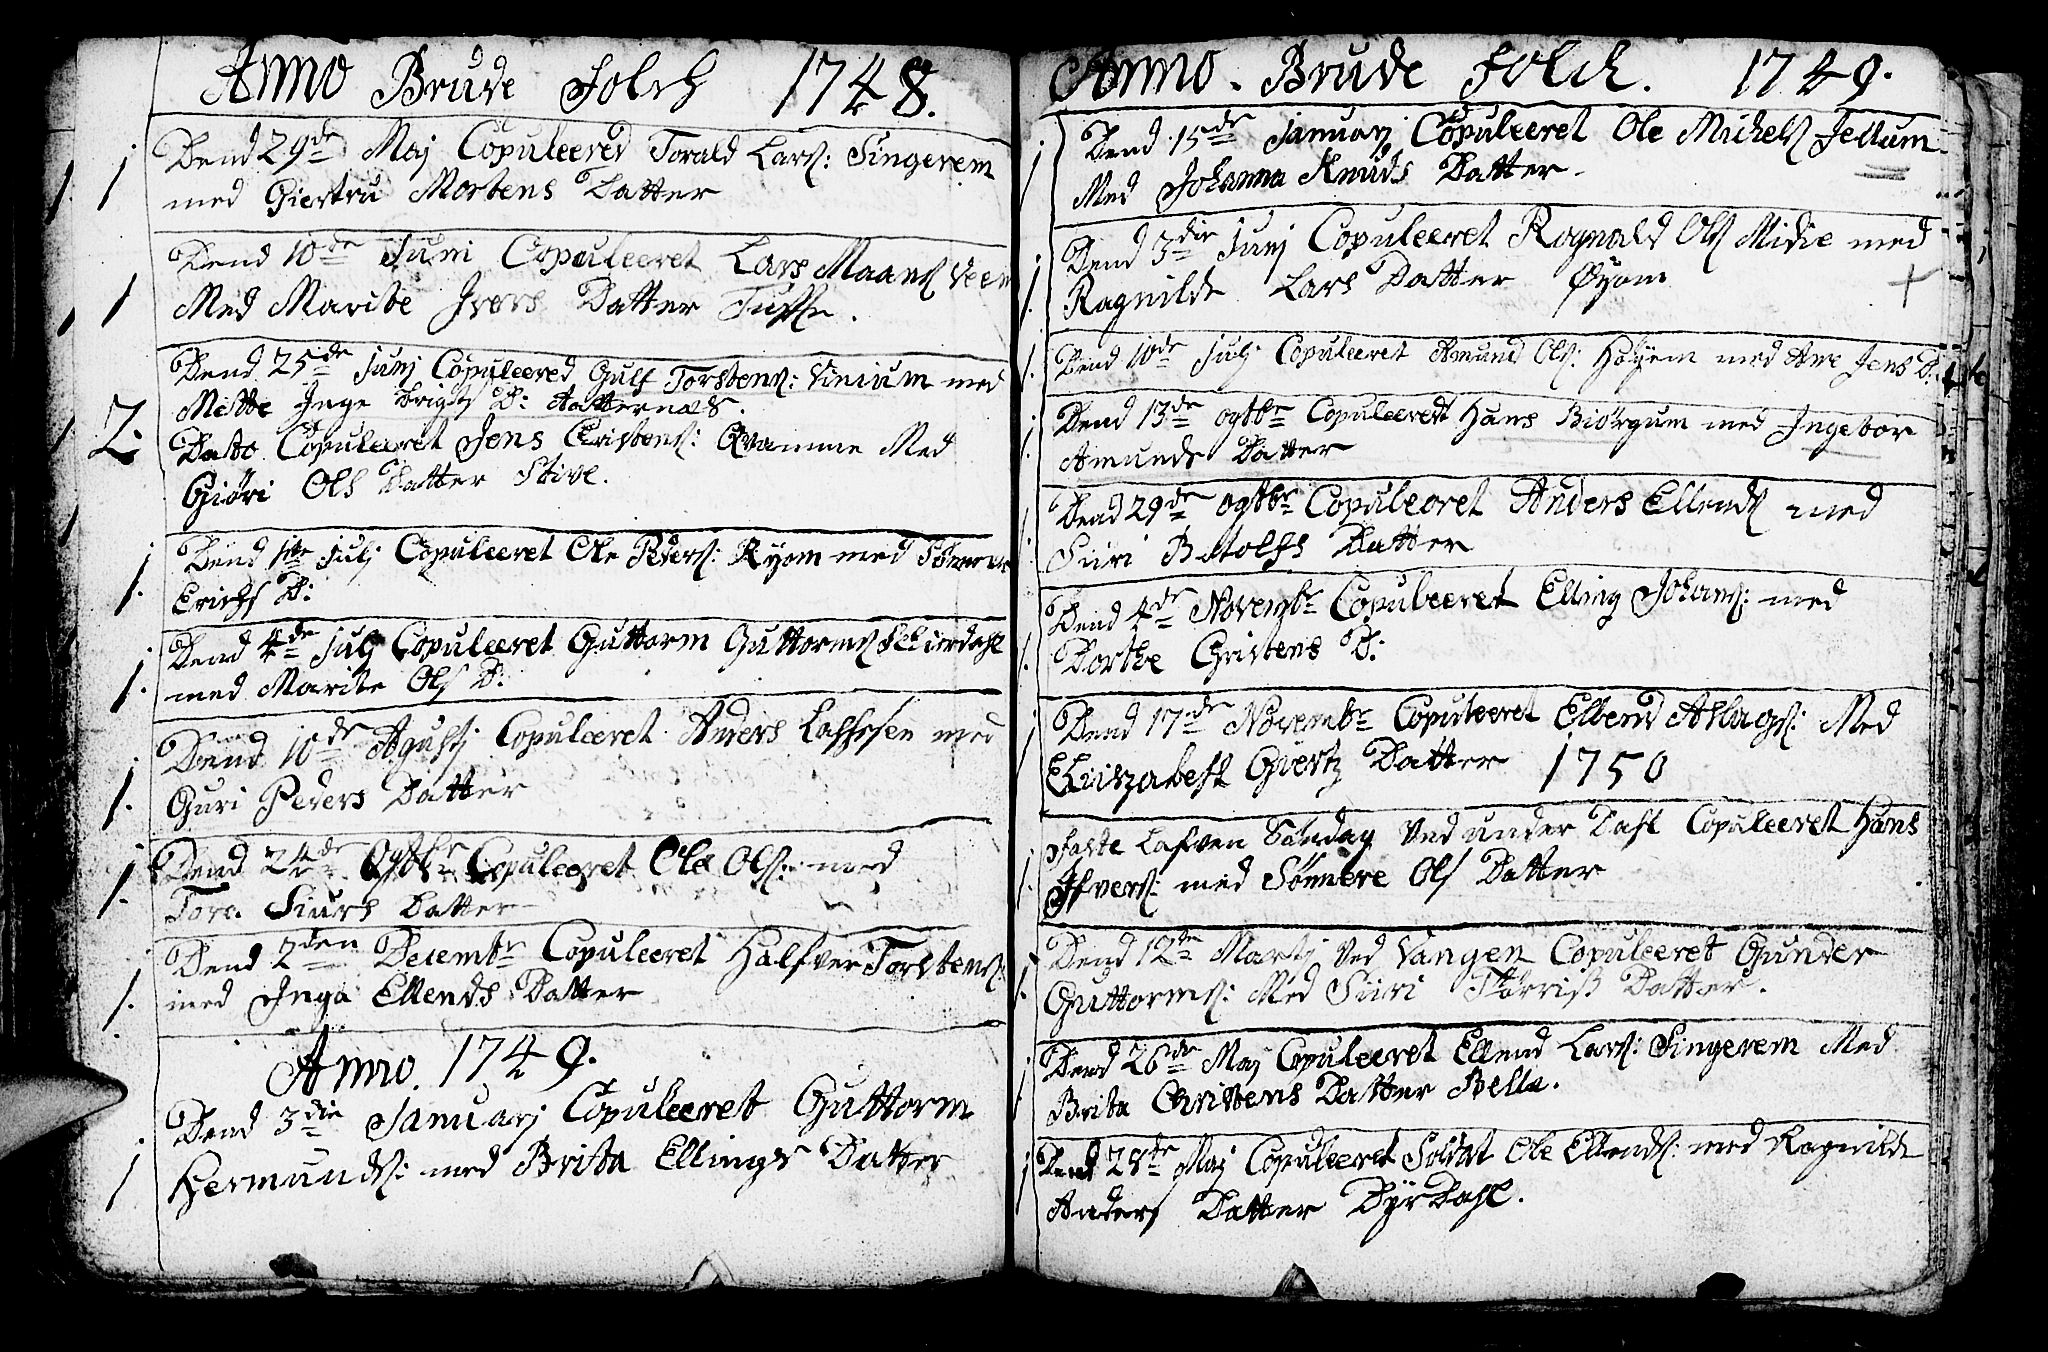 Anno Brude Folch 1748.
1 Dend 29de Maj Copuleered Torald Lars: Singerem
med Giertru Mortens Datter
1 Dend 10de Juni Copuleeret Lars Maans Veem
Med Marite Ivers Datter Tufte.
Dend 25de Junj Copuleered Gulf Torstens: Vinium med
2. Mette Inge Brigts D: Aatternæs.
Dato Copuleeret Jens Cristens: Qvamme Med
Giøri Ols Datter Stive.
1. Dend 1te Julj Copuleeret Ole Peders: Ryom med
Erichs D:
1. Dend 4de Julj Copuleeret Guttorm Guttorms Schierdahl
med Marite Ols D:
1. Dend 10de Agustj Copuleeret Anders Lassesen med
Guri Peders Datter
1. Dend 24de Ogtbr Copuleeret Ole Ols: med
Toro Siurs Datter
1. Dend 2den Decembr Copuleeret Halfver Torstens:
med Inga Ellends Datter
Anno. 1749.
1 Dend 3die Januarj Copuleeret Guttorm
Hermunds: med Brita Ellings Datter
Anno. Brude Folch. 1749.
1 Dend 15de Januarj Copuleeret Ole Michels Jellum
Med Johanna Knuds Datter.
1. Dend 3die Junj Copuleeret Rognald Ols Midie med
Ragnilde Lars Datter Øyom +
1. Dend 10de Julj Copuleeret Amund Ols: Holyem med Ane Jens D:
1. Dend 13de Ogtbr Copuleeret Hans Biørgum med Ingebor
Amunds Datter
1. Dend 29de Ogtbr Copuleeret Anders Ellends med
Siuri Botolfs Datter
1. Dend 4de Novembr Copuleeret Elling Johans: med
Dorthe Christens D:
1 Dend 17de Novembr Copuleeret Ellend Aslags: Med
Eliszabeth Giertz Datter 1750
1. faste Lafven Søndag Ved under Dahl Copuleeret Hans
Ifvers: med Sønnere Ols Datter
1. Dend 12te Martj Ved Vangen Copuleeret Gunder
Guttorms: Med Siuri Tørris Datter.
1 Dend 26de Maj Copuleeret Ellend Lars: Singerem Med
Brita Christens Datter Belle.
1 Dend 28te Maj Copuleeret Soldat Ole Ellends: med Ragnilde
Anders Datter DyrDahl.